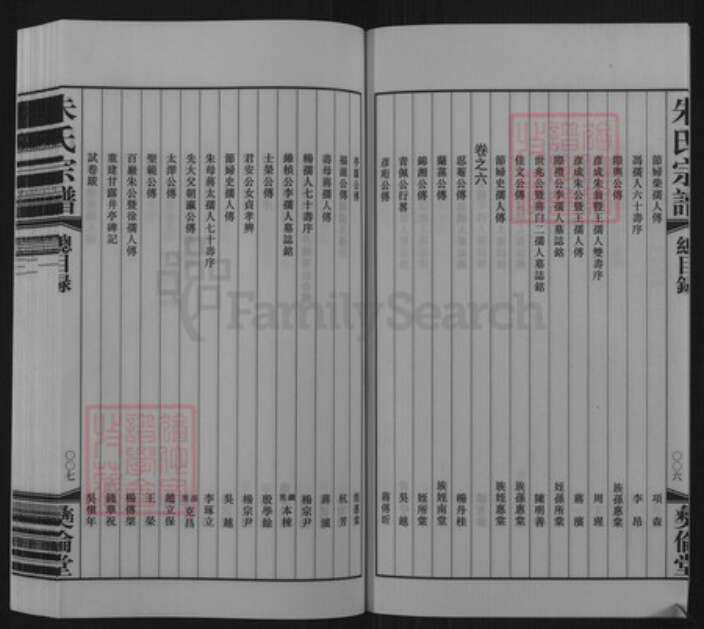 朱氏宗譜
總目錄
〇〇六
彝倫堂
節婦榮孺人傳 項森
馮孺人六十壽序 李昂
際輿公傳 族孫惠棠
彥成朱翁暨王孺人雙壽序 周瑆
彥成朱公暨王孺人傳 蔣濱
際禮公李孺人墓誌銘 姪孫所棠
世兆公暨蔣白二孺人墓誌銘 陳明善
佳文公傳 族孫惠棠
節婦史孺人傳 族姪惠棠
卷之六
思遜公傳 楊丹桂
蘭蓀公傳 族姪南棠
錦洲公傳 姪所棠
青佩公行畧 吳越
彥珩公傳 蔣傅昕
亭蘭公傳 姪惠棠
福謙公傳
壽母蔣孺人傳 蔣濱
楊孺人七十壽序 楊宗尹
錦楨公李孺人墓誌銘 本棟
士榮公傳 殷學餘
君安公女貞孝辨 楊宗尹
節婦史孺人傳 吳越
朱母蔣太孺人七十壽序 李琢立
先大父朝瀛公傳 克昌
太澤公傳 趙立保
聖範公傳 王榮
百嚴朱公暨徐孺人傳 楊傳棨
重建甘露井亭碑記 錢華祝
試卷跋 吳懷年
朱氏宗譜
總目錄
〇〇七
彝倫堂
FamilySearch